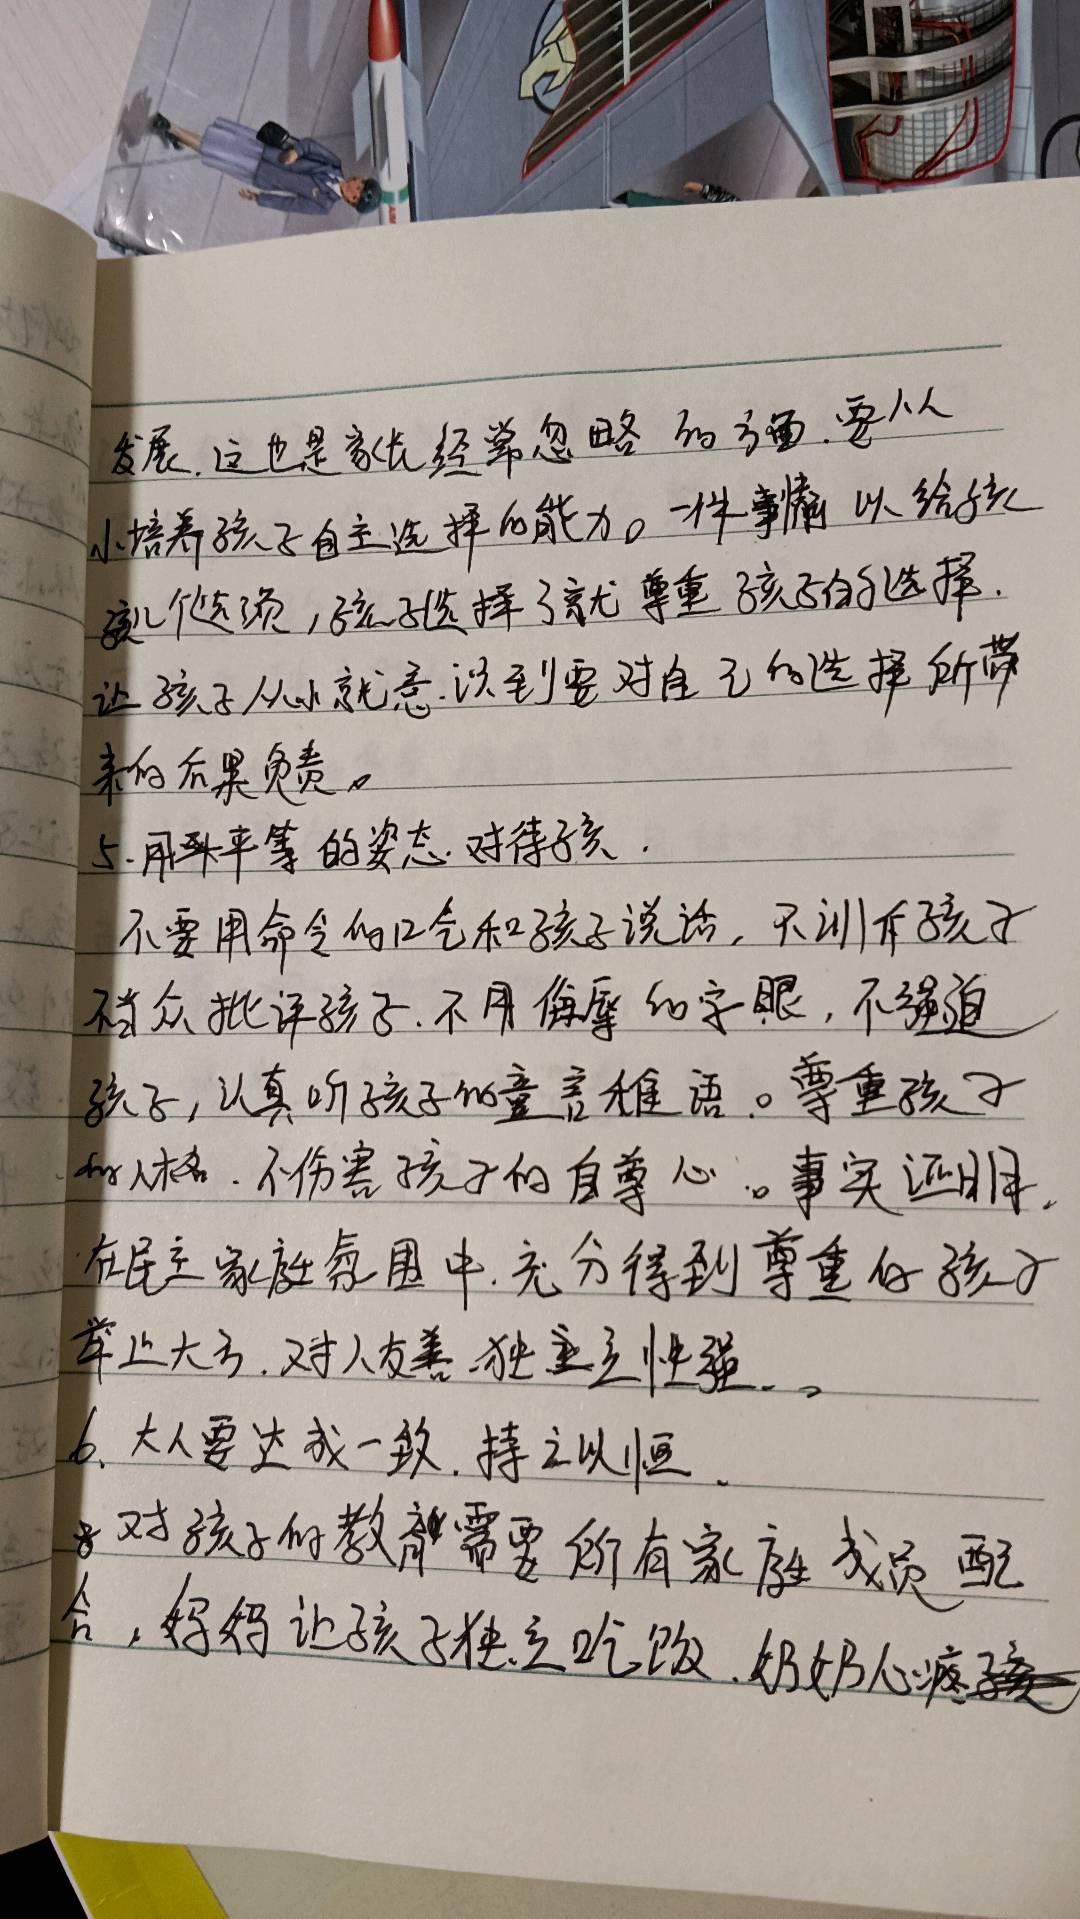 发展.这也是家长经常忽略的方面.要从
小培养孩子自主选择的能力。一件事情以给孩
孩几个选项,孩子选择了就尊重孩子的选择.
让孩子从小就意识到要对自己的选择所带
来的后果负责。
5.用平等的姿态对待孩.
不要用命令的口气和孩子说话,不训斥孩子
不当众批评孩子.不用侮辱的字眼,不强迫
孩子,认真听孩子的童言稚语。尊重孩子
的人格.不伤害孩子的自尊心。事实证明.
在民主家庭氛围中.充分得到尊重的孩子
举止大方.对人友善.独立性强.。
6.大人要达成一致.持之以恒.
对孩子的教育需要所有家庭成员配
合,妈妈让孩子独立吃饭.奶奶心疼孩